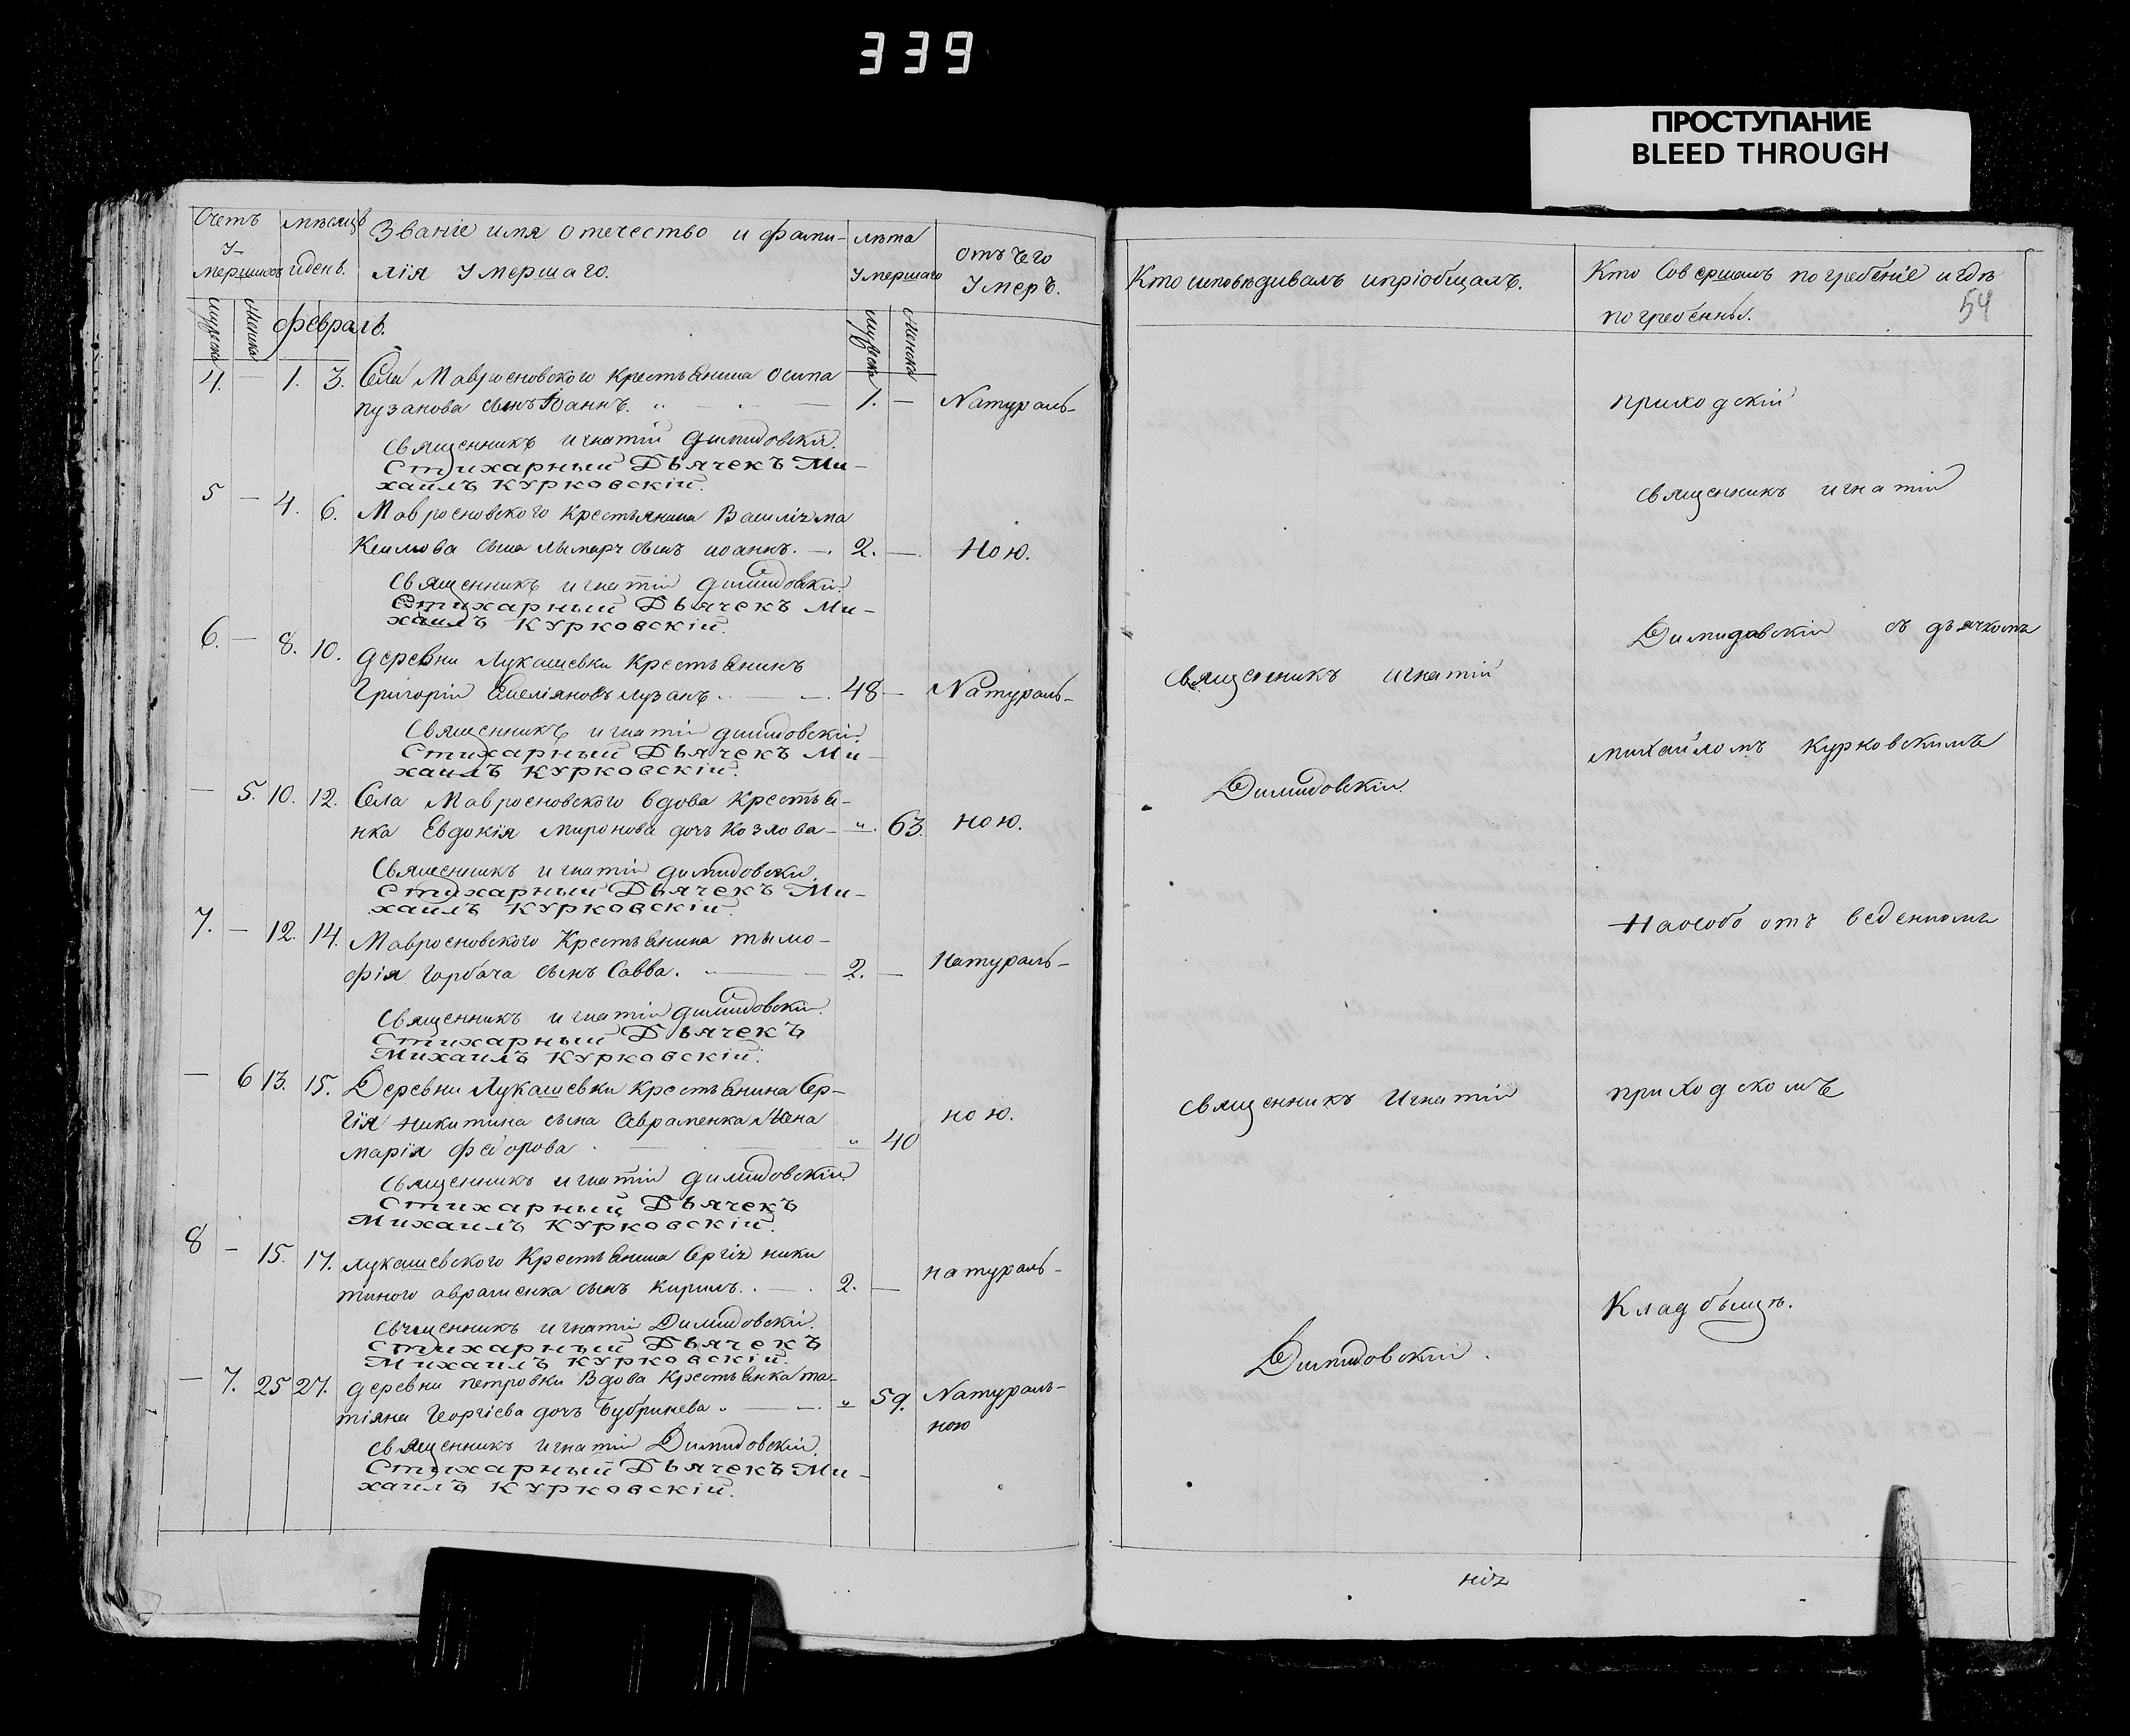 339
ПРОСТУПАНИЕ
BLEED THROUGH
Счетъ
у-
мершихъ
мѣсяцъ
идень.
Званіе имя отечество и фами-
лія Умершаго.
лѣта
Умершаго
отъ чего
Умеръ.
мужеска
женска
февраль.
мужеска
женска
4. — 1. 3. Села Мавросновского крестьянина Осипа
пузанова сынъ Іоаннъ. 1. — Натураль-
Священникъ игнатій димидовскій.
Стихарный Дьячекъ Ми-
хаилъ курковскій.
5 — 4. 6. Мавросновского Крестьянина
сына сынъ иоаннъ. — 2. — Ною.
Священникъ игнатій димидовскій.
Стихарный Дьячекъ Ми-
хаилъ курковскій.
6. — 8. 10. деревни Лукашевки Крестьянинъ
Григорій Емеліяновъ лузанъ. — 48 — Натураль-
Священникъ игнатій димидовскій.
Стихарный Дьячекъ Ми-
хаилъ курковскій.
— 5. 10. 12. Села Мавросновского вдова Крестья-
нка Евдокія миронова дочь Козлова — " 63. ною.
Священникъ игнатій димидовскій.
Стихарный Дьячекъ Ми-
хаилъ курковскій.
7. — 12. 14. Мавросновского Крестьянина тымо-
фія горбача сынъ Савва. 2. — Натураль-
Священникъ игнатій димидовскій.
Стихарный Дьячекъ
Михаилъ курковскій.
— 6 13. 15. Деревни Лукашевки Крестьянина Сер-
гія Никитина сына Авраменка Жена
марія федорова " 40 ною.
Священникъ игнатій димидовскій
Стихарный Дьячекъ
Михаилъ курковскій.
8 — 15. 17. лукашевского Крестьянина Сергія ники
тиного авраменка сынъ Кирилъ. — 2. — натураль-
Священникъ игнатій Димидовскій.
Стихарный Дьячекъ
Михаилъ курковскій.
— 7. 25 27. деревни петровки Вдова Крестьянка та-
тіяна Георгіева дочь Бубринева. — " 59. Натураль-
ною
Священникъ игнатій Димидовскій.
Стихарный Дьячекъ Ми-
хаилъ курковскій.
Кто исповѣдивалъ ипріобщалъ.
Священникъ игнатій
Димидовскій.
священникъ Игнатій
Димидовскій.
Кто Совершалъ погребеніе и гдѣ
погребенны.
54
приходскій
священникъ игнатій
Димидовскій съ дьячкомъ
михайломъ курковскимъ
На особо отъ веденномъ
приходскомъ
Кладбыщѣ.